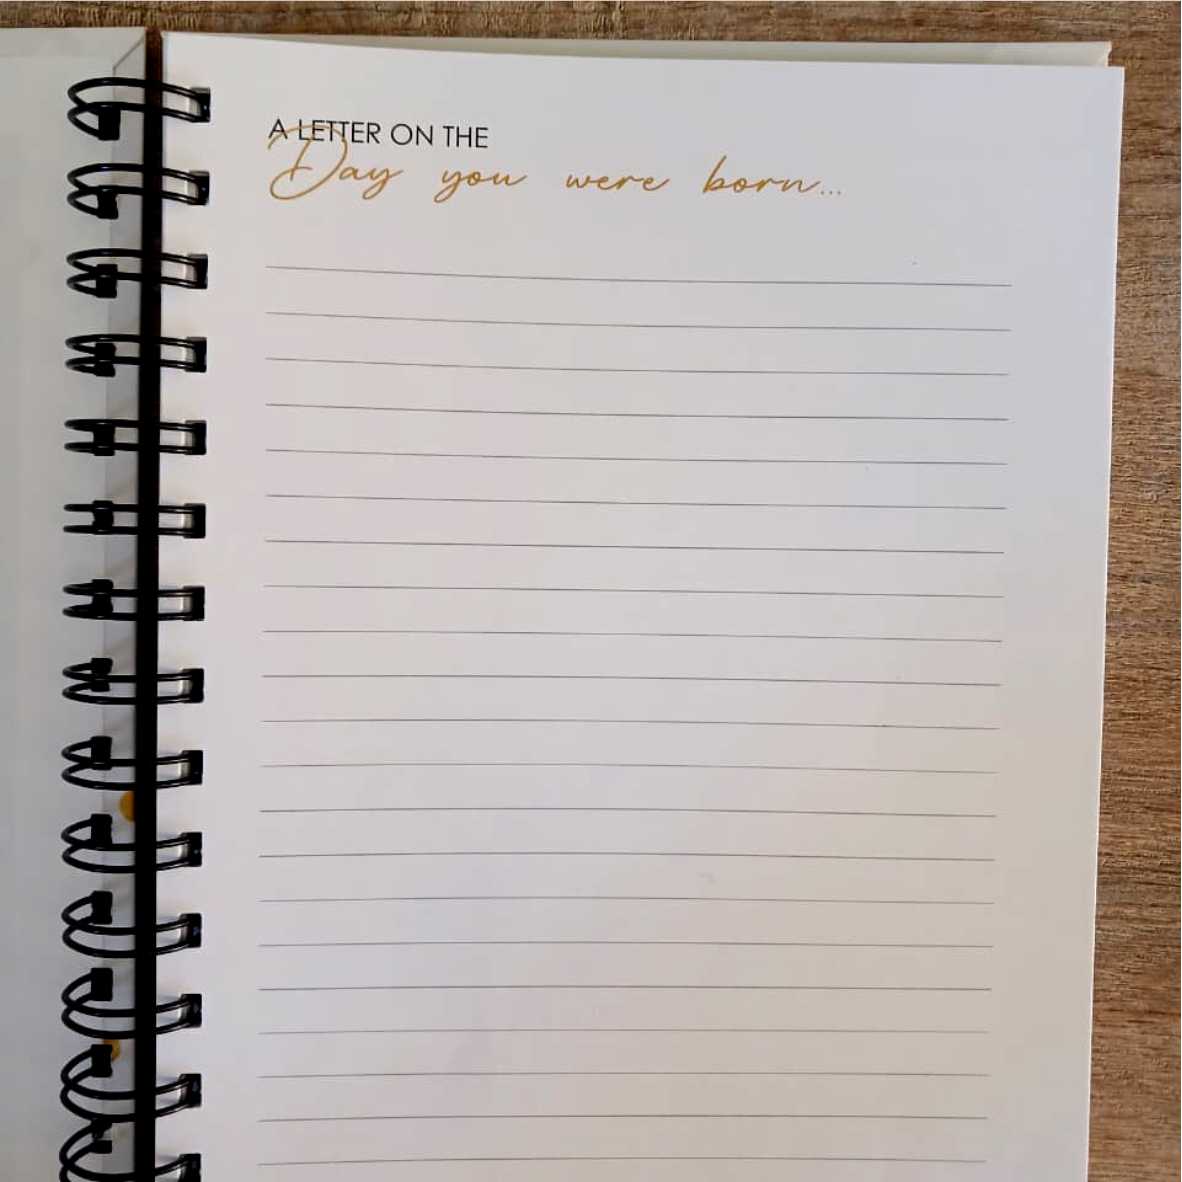 A LETTER ON THE
Day you were born...